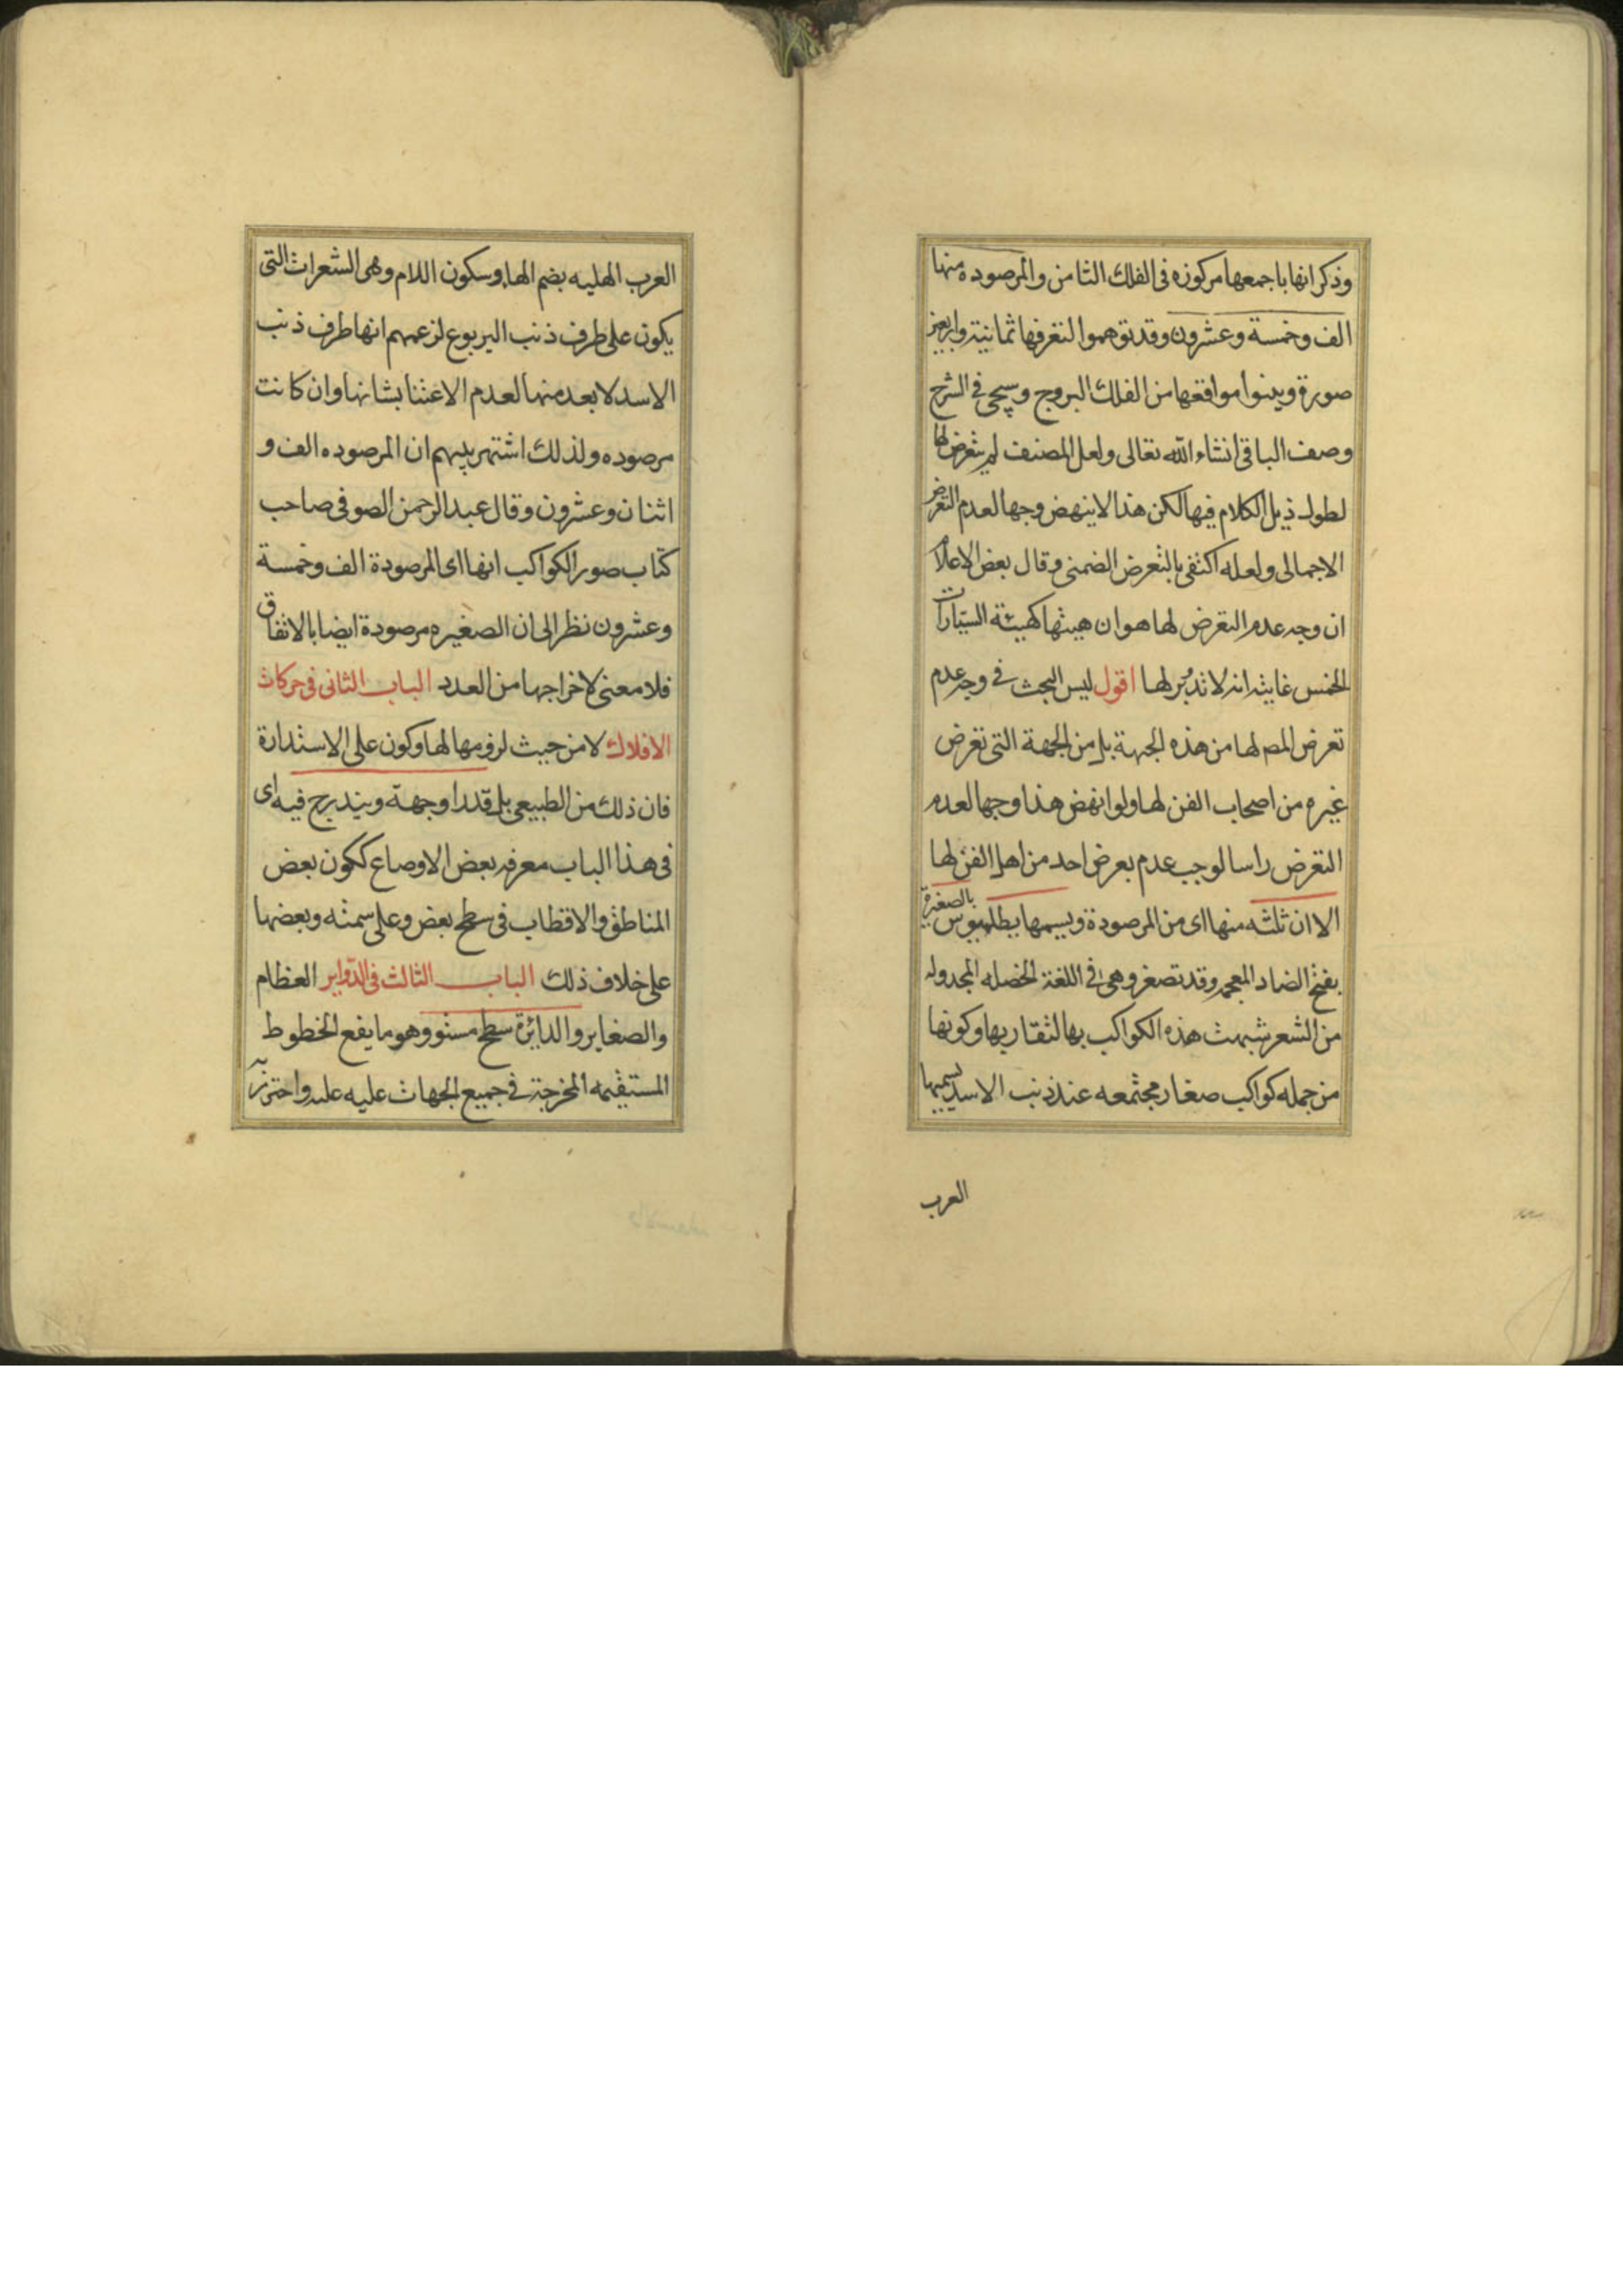 وذكر انها باجمعها مركوزه فى الفلك الثامن والمرصوده منها
الف وخمسة وعشرون وقد توهموا لتعرفها ثمانية واربعين
صورة وبينوا مواقعها من الفلك البروج وسيجى فى الشرح
وصف الباقى انشاء الله تعالى ولعل المصنف لم يتعرض لها
لطول ذيل الكلام فيها لكن هذا لا ينهض وجها لعدم التعرض
الاجمالى ولعله اكتفى بالتعرض الضمنى وقال بعض الاعلام
ان وجه عدم التعرض لها هو ان هيئتها كهيئة السيارات
الخمس غايته انه لا تدوير لها اقول ليس البحث فى وجه عدم
تعرض المص لها من هذه الجهة بل من الجهة التى تعرض
غيره من اصحاب الفن لها ولو انهض هذا وجها لعدم
التعرض راسا لوجب عدم بعرض احد من اهل الفن لها
الا ان ثلثه منها اى من المرصودة ويسميها بطلميوس بالصغيرة
بفتح الضاد المعجمه وقد تصغر وهى فى اللغة الخصله المجدوله
من الشعر شبهت هذه الكواكب بها لتقاربها وكونها
من جمله كواكب صغار مجتمعه عند ذنب الاسد يسميها
العرب
العرب الهلبه بضم الهاء وسكون اللام وهى الشعرات التى
يكون على طرف ذنب اليربوع لزعمهم انها طرف ذنب
الاسد لا بعده منها لعدم الاعتنا بشانها وان كانت
مرصوده ولذلك اشتهر بينهم ان المرصوده الف و
اثنان وعشرون وقال عبد الرحمن الصوفى صاحب
كتاب صور الكواكب انها اى المرصودة الف وخمسة
وعشرون نظر الى ان الصغيره مرصودة ايضا بالاتفاق
فلا معنى لاخراجها من العدد الباب الثانى فى حركات
الافلاك لا من حيث لزومها لها وكون على الاستدارة
فان ذلك من الطبيعى بل قدرا وجهة ويندرج فيه اى
فى هذا الباب معرفه بعض الاوصاع ككون بعض
المناطق والاقطاب فى سطح بعض وعلى سمته وبعضها
على خلاف ذلك الباب الثالث فى الدواير العظام
والصغاير والدائرة سطح مستو وهو ما يقع الخطوط
المستقيمه المخرجة فى جميع الجهات عليه واحترز به